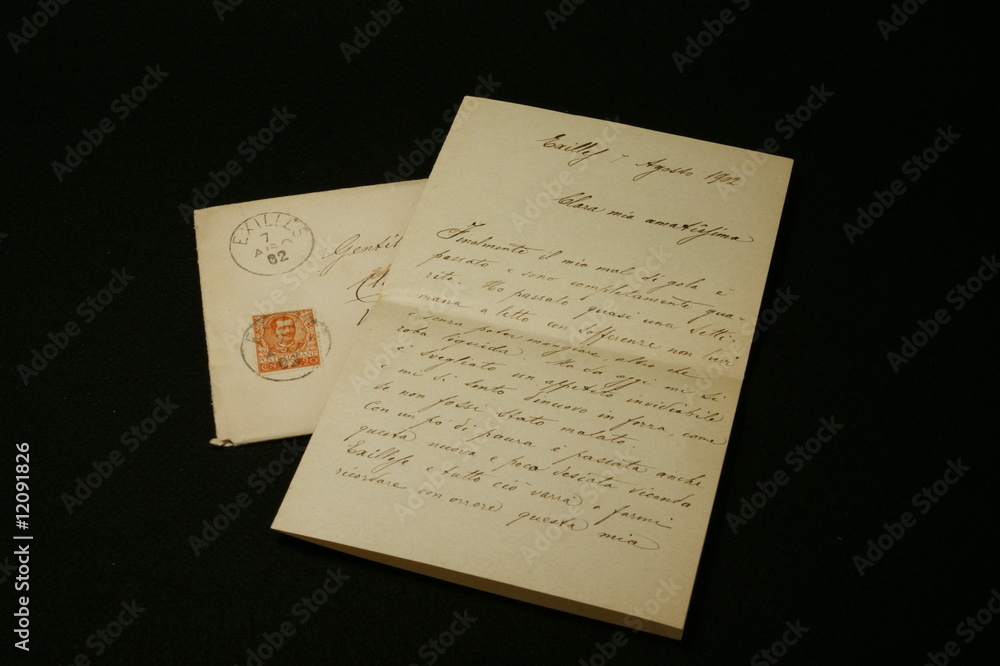 EXILLES
7
AGO
02
Gentil
POSTE ITALIANE
CENT. 20
Exilles 7 Agosto 1902
Clara mia amatissima
Finalmente il mio mal di gola è
passato e sono completamente gua-
rito. Ho passato quasi una setti-
mana a letto con sofferenze non lievi
e senza poter mangiare altro che
roba liquida. Ma da oggi mi si
è svegliato un appetito invidiabile
e mi sento di nuovo in forza, come
se non fosse stato malato.
Con un po' di paura è passata anche
questa nuova e poca desiata vicenda
Exillese e tutto ciò varrà a farmi
ricordare con orrore questa mia
Adobe Stock | #12091826